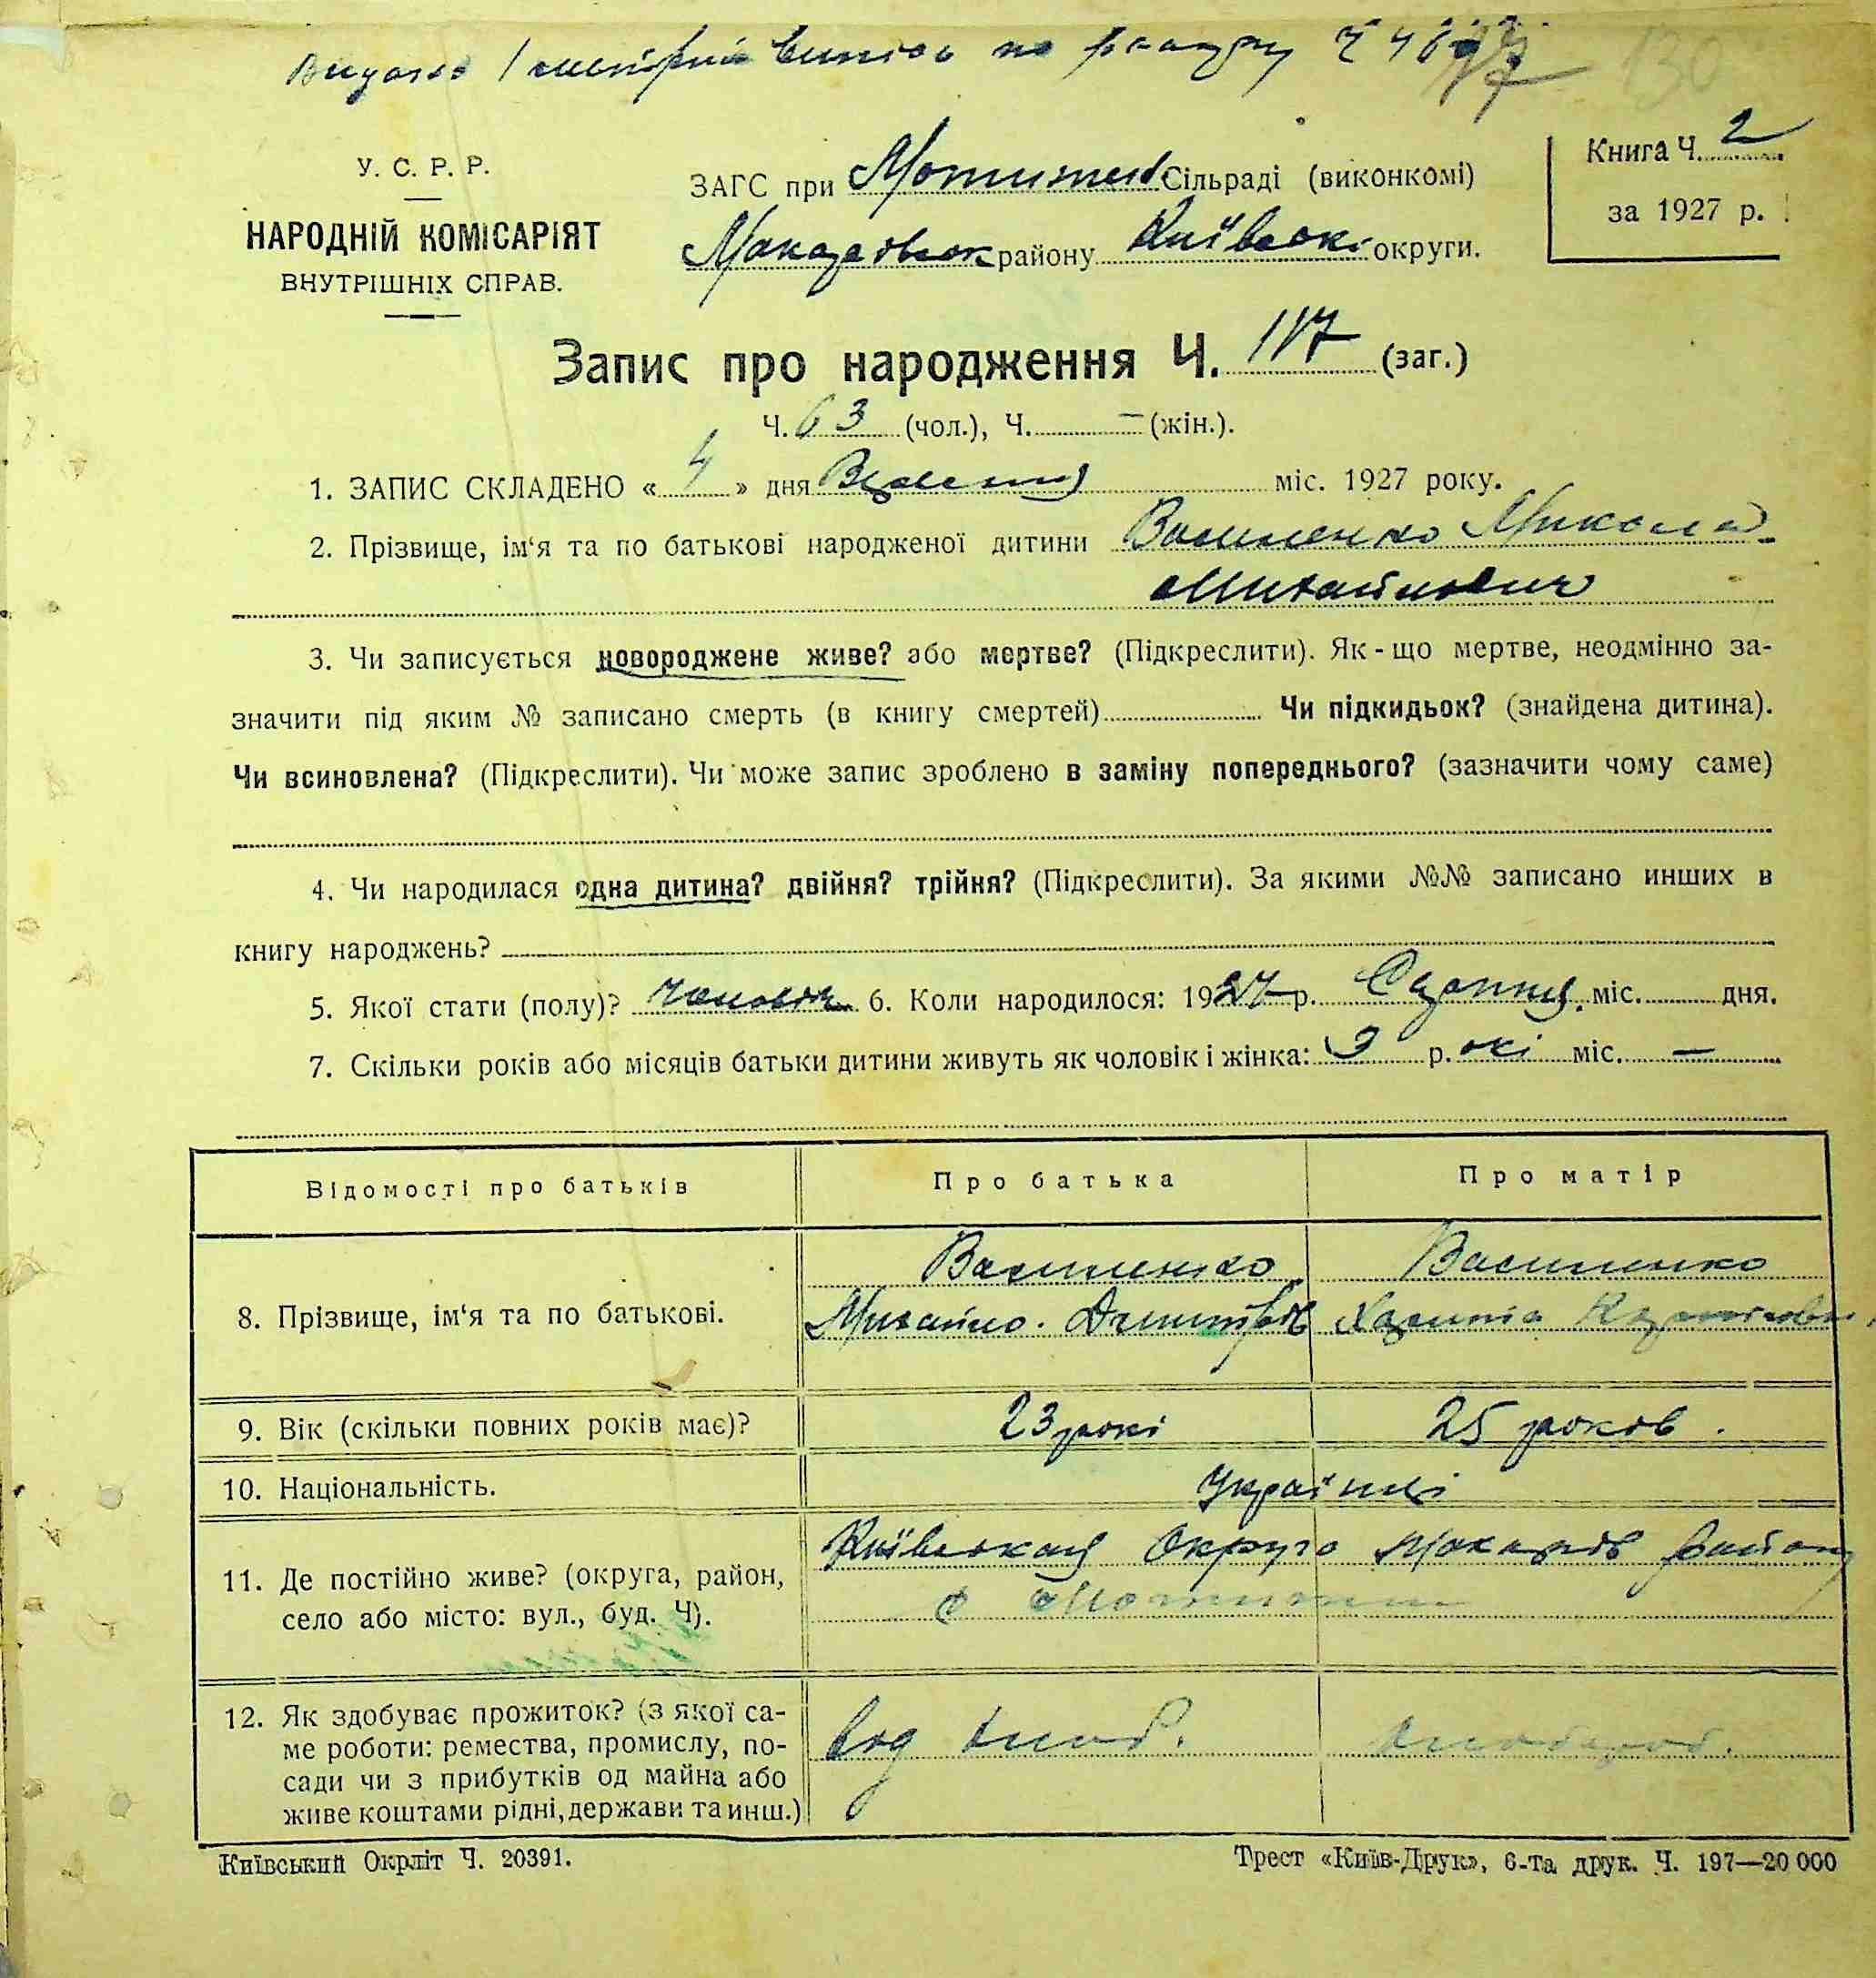 130
У. С. Р. Р.
НАРОДНІЙ КОМІСАРІЯТ
ВНУТРІШНІХ СПРАВ.
ЗАГС при Мотижен Сільраді (виконкомі)
Макарівськ району Київської округи.
Книга Ч. 2
за 1927 р.
Запис про народження Ч. 117 (заг.)
Ч. 63 (чол.), Ч. — (жін.).
1. ЗАПИС СКЛАДЕНО « 4 » дня міс. 1927 року.
2. Прізвище, ім‘я та по батькові народженої дитини Василенко Микола
Михайлович
3. Чи записується новороджене живе? або мертве? (Підкреслити). Як-що мертве, неодмінно за-
значити під яким № записано смерть (в книгу смертей) Чи підкидьок? (знайдена дитина).
Чи всиновлена? (Підкреслити). Чи може запис зроблено в заміну попереднього? (зазначити чому саме)
4. Чи народилася одна дитина? двійня? трійня? (Підкреслити). За якими №№ записано инших в
книгу народжень?
5. Якої стати (полу)? чоловіч 6. Коли народилося: 1927 р. Серпня міс. дня.
7. Скільки років або місяців батьки дитини живуть як чоловік і жінка: 3 р. окі міс. —
Відомості про батьків
Про батька
Про матір
8. Прізвище, ім‘я та по батькові.
Василенко
Михайло Дмитров
Василенко
9. Вік (скільки повних років має)?
23 рокі
25 роков.
10. Національність.
Українці
11. Де постійно живе? (округа, район,
село або місто: вул., буд. Ч).
Київська Округа Макарів району
с Мотижин
12. Як здобуває прожиток? (з якої са-
ме роботи: ремества, промислу, по-
сади чи з прибутків од майна або
живе коштами рідні, держави та инш.)
Київський Окрліт Ч. 20391.
Трест «Київ-Друк», 6-та друк. Ч. 197—20 000